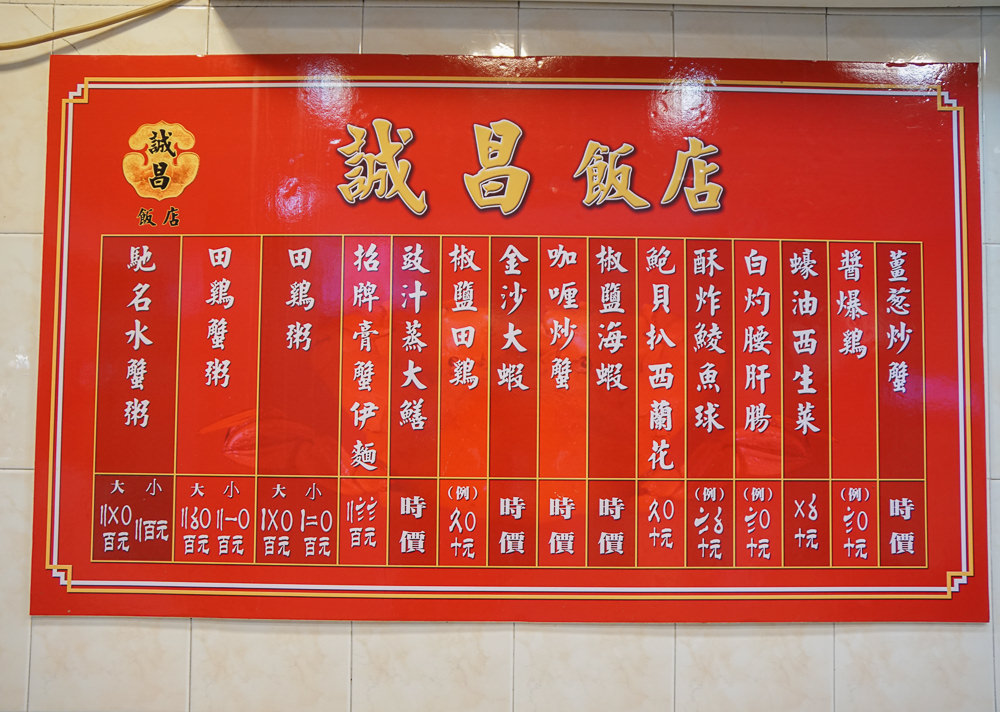 誠昌飯店
誠
昌
飯店
薑葱炒蟹
時價
醬爆鷄
(例)
〨〇
十元
蠔油西生菜
〤〥
十元
白灼腰肝腸
(例)
〨〇
十元
酥炸鯪魚球
(例)
〧〥
十元
鮑貝扒西蘭花
〩〇
十元
椒鹽海蝦
時價
咖喱炒蟹
時價
金沙大蝦
時價
椒鹽田鷄
(例)
〩〇
十元
豉汁蒸大鱔
時價
招牌膏蟹伊麵
〢〨〨
百元
田鷄粥
大 小
〡〤〇 〡二〇
百元 百元
田鷄蟹粥
大 小
〢〥〇 〢一〇
百元 百元
馳名水蟹粥
大 小
〢〤〇 〢百元
百元